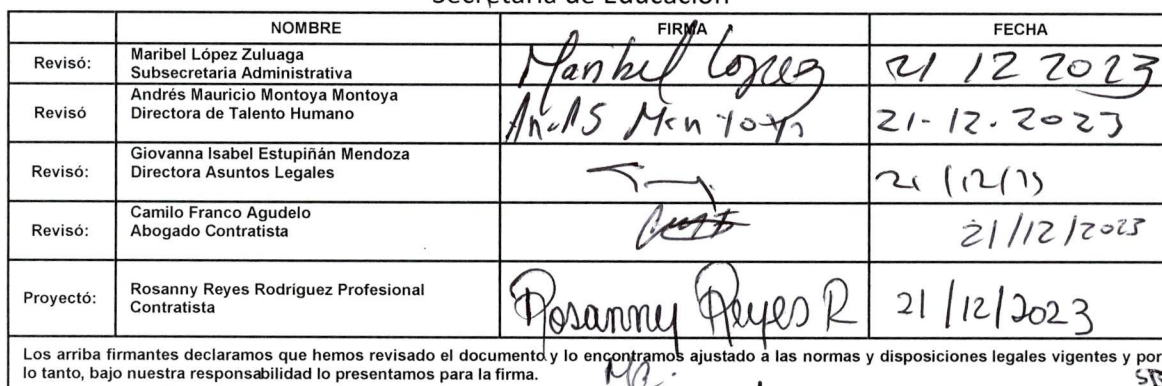 Secretaría de Educación
NOMBRE FIRMA FECHA
Revisó: Maribel López Zuluaga
Subsecretaria Administrativa
Maribel López 21 12 2023
Revisó Andrés Mauricio Montoya Montoya
Directora de Talento Humano
Montoya 21-12.2023
Revisó: Giovanna Isabel Estupiñán Mendoza
Directora Asuntos Legales
Revisó: Camilo Franco Agudelo
Abogado Contratista
21/12/2023
Proyectó: Rosanny Reyes Rodríguez Profesional
Contratista
Rosanny Reyes R 21/12/2023
Los arriba firmantes declaramos que hemos revisado el documento y lo encontramos ajustado a las normas y disposiciones legales vigentes y por
lo tanto, bajo nuestra responsabilidad lo presentamos para la firma.